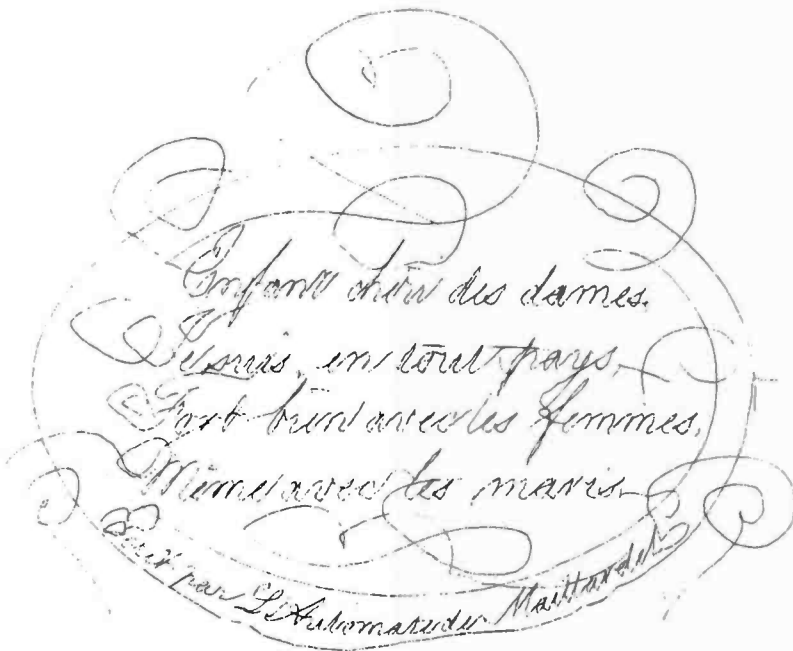 Enfant chéri des dames,
Je suis, en tout pays,
Fort bien avec les femmes,
Même avec les maris.
Ecrit par L'Automate de Maillardet